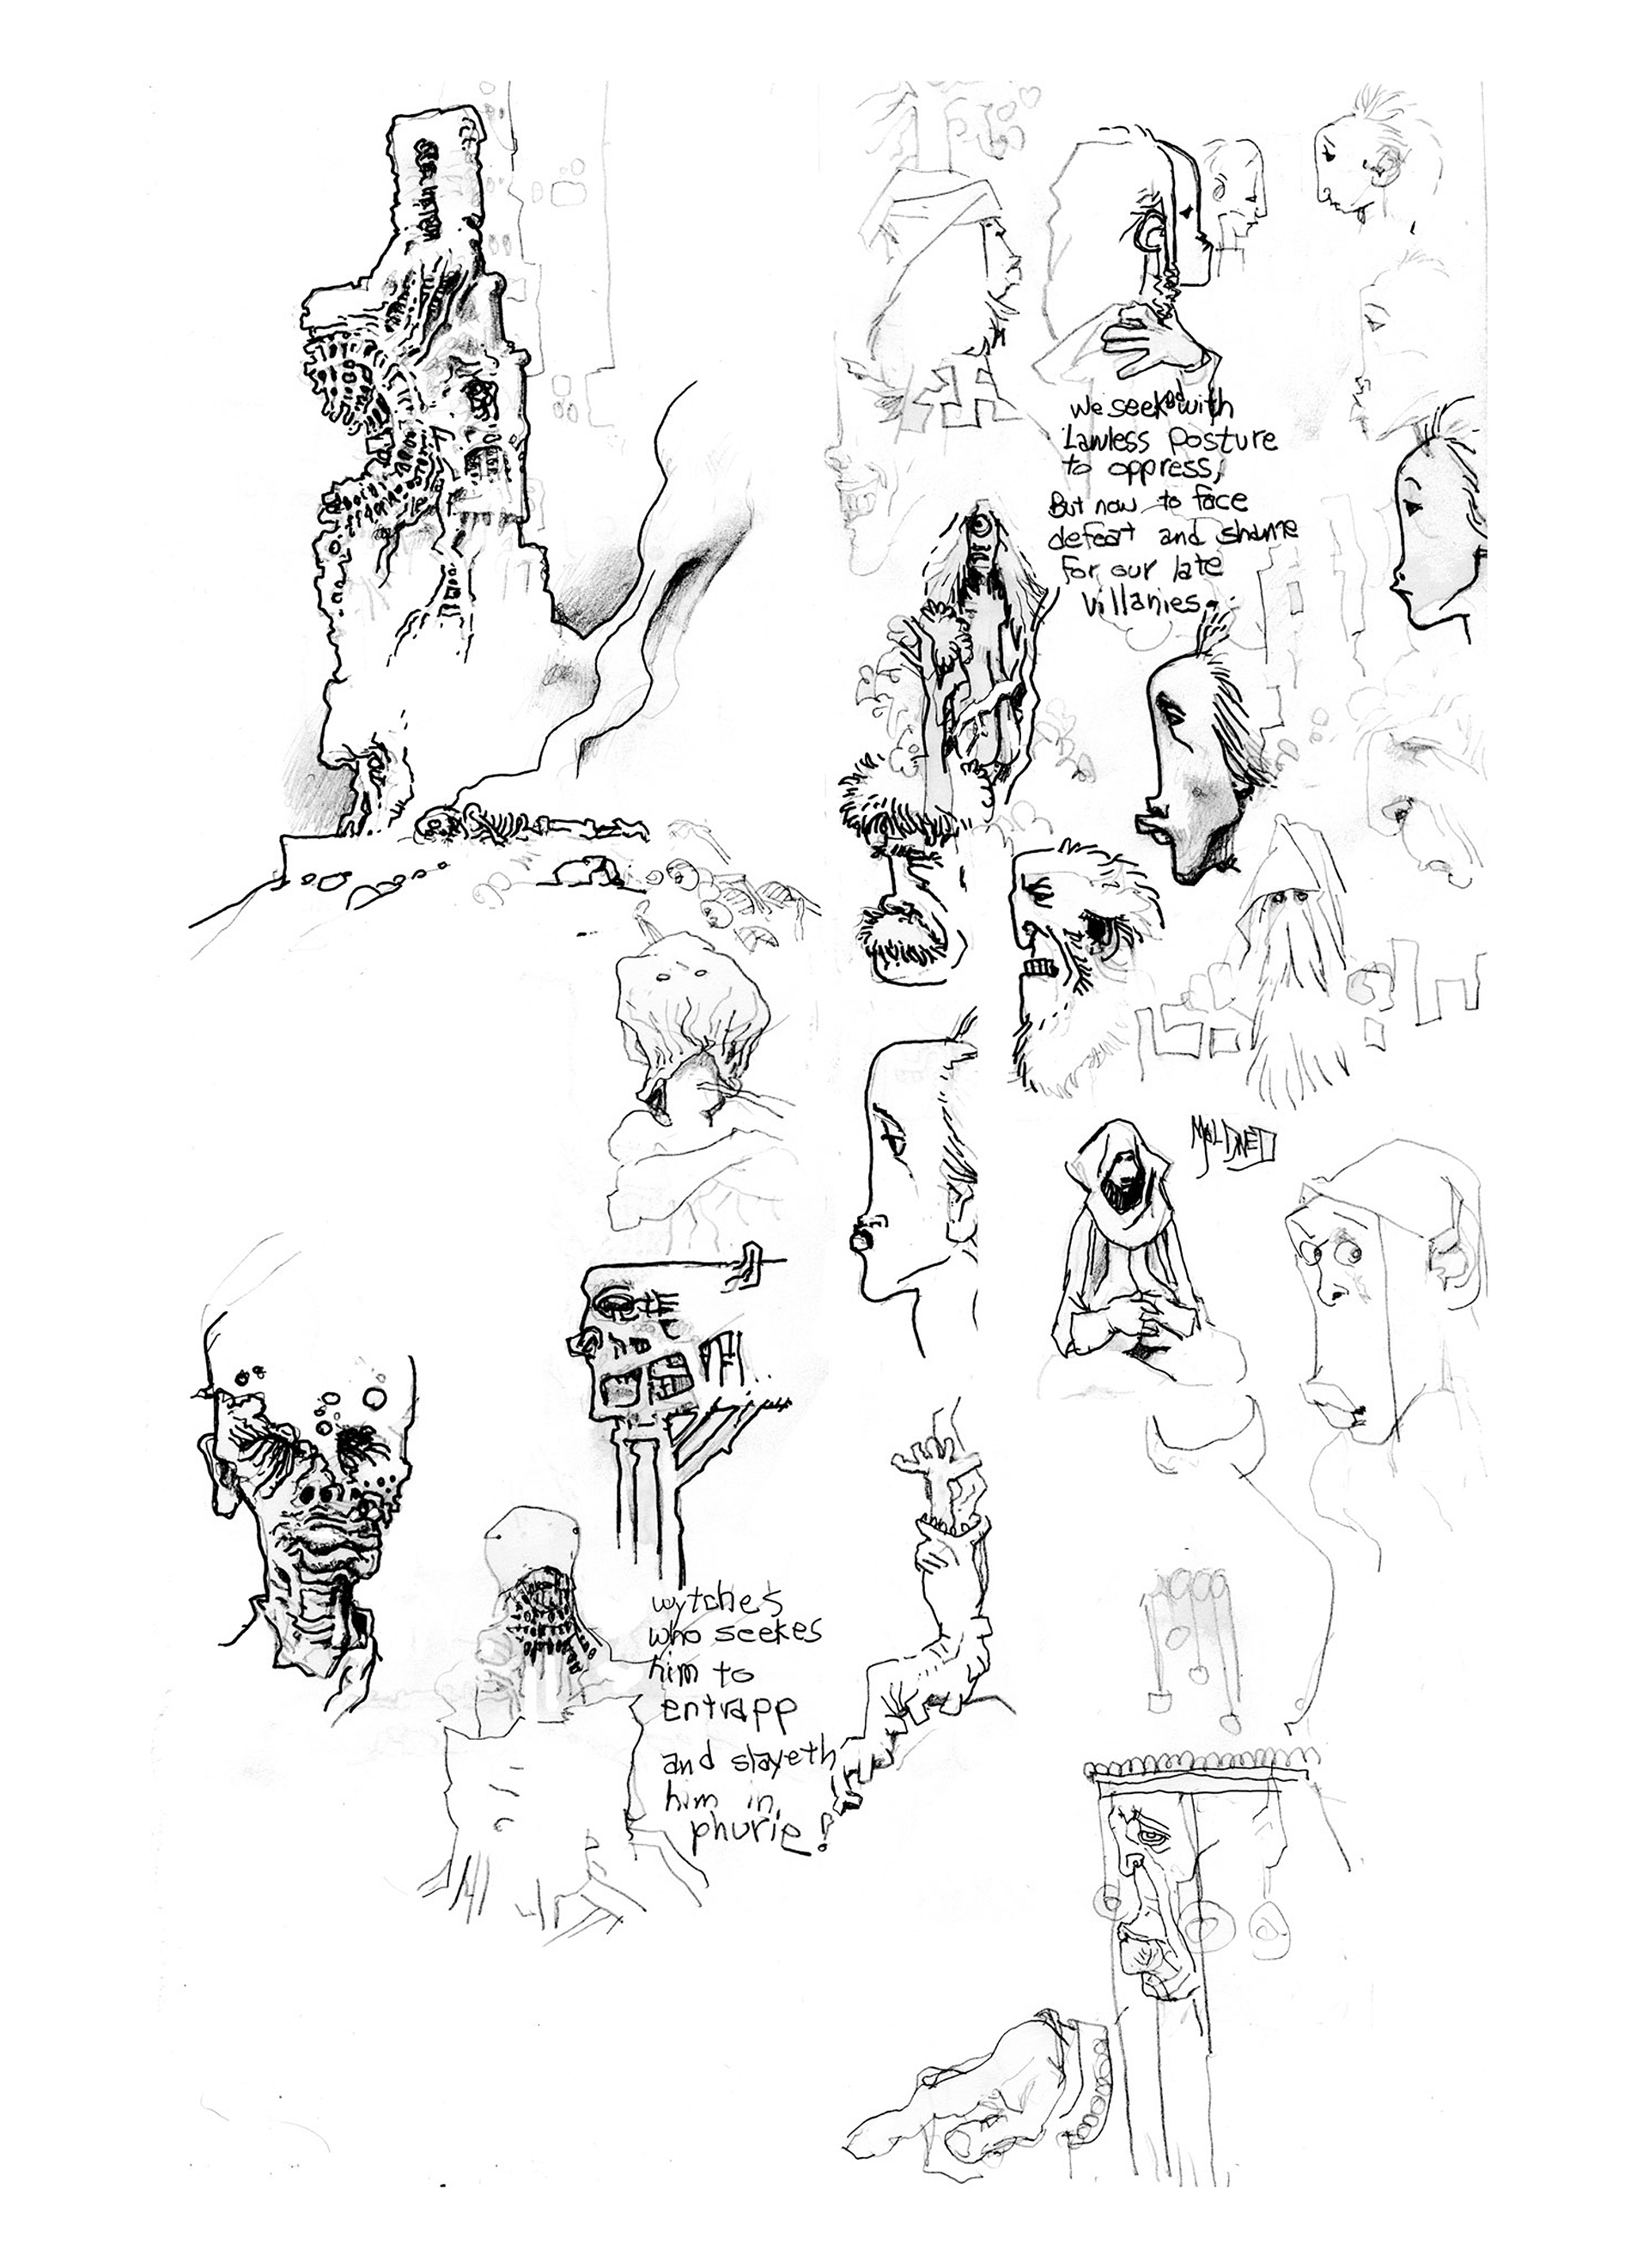 we seek with
Lawless Posture
to oppress,
But now to face
defeat and shame
for our late
villanies.
wytches
who seekes
him to
entrapp
and slayeth
him in
phurie!